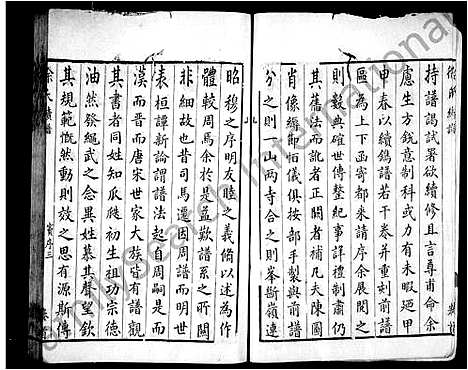 持譜謁試署欲續修且言尊甫命余
慮生方銳意制科或力有未暇迺甲
甲春以續鐫譜若干卷并重刻前譜
區為上下函寄都來請序余展閱之
則數典確世傳整紀事詳禮制肅仍
其舊法而訛者正闕者補凡夫陳圖
肖像經節佰儀俱按部手製與前譜
分之則一山兩寺合之則峯斷嶺連
昭穆之序明友睦之義脩以述為作
體較周馬余於是益歎譜系之所關
非細故也昔司馬遷因周譜而明世
表桓譚新論謂譜法起自周嗣是而
漢而晋而唐宋世家大族皆有譜觀
其書者同姓知瓜瓞初生祖功宗德
油然發繩武之念異姓慕其聲望欽
其規範慨然動則效之思有源斯傳
徐氏續譜
賓序三